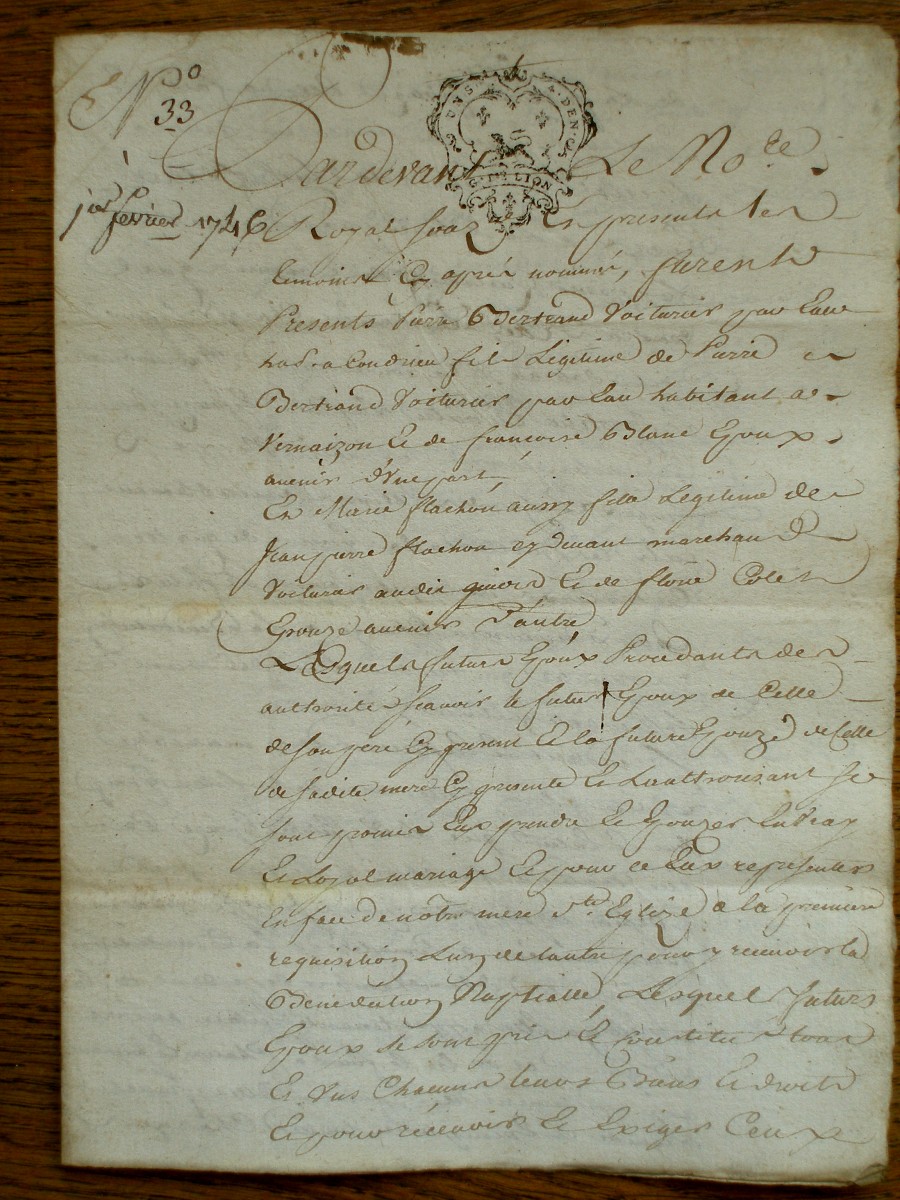 N.º
33
1er février 1746
UNS 4. DEN.
G. DE LION
Pardevant Le Nore
Royal souz.é Et presents les
temoins Cy après nommés, furents
Presents Pierre Bertrand Voiturier par Eau
habt. a Condrieu fils Légitime de Pierre
Bertrand Voiturier par Eau habitant a
Vernaizon Et de françoise Blanc Epoux
avenir d'Vne part,
Et Marie flachon aussy fille Légitime de
Jean pierre flachon cy devant marchand
Voiturier audit Et de Colet
Epouze avenir d'autre
Lesquels futurs Epoux Procedants des
authorités scavoir le futur Epoux de Celle
de son pere Cy present Et la future Epouze de Celle
de sadite mere Cy presente Et Lauthorisant se
sont promis Eux prendre Et Epouzer En Vray
Et Loyal mariage Et pour ce Eux representer
En face de notre mere Ste Eglize a la premiere
requisition Lun de lautre pour y recevoir la
Benediction Nuptialle, Lesquels futurs
Epoux se sont pris Et constitués tous
Et Vns Chacuns leurs Biens Et droits
Et pour récevoir Et Exiger Ceux